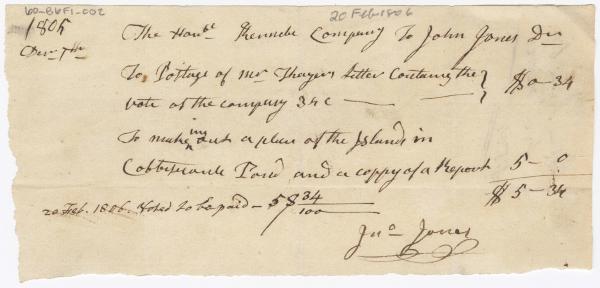 60-BVF1-002
20 Feb 1806
1805
Decr 7th
The Honble Kennebe Company To John Jones Dr
To Postage of Mr Thayers Letter Containg the
vote of the company 34c — $0-34
To making out a plan of the Islands in
Cobbiseconte Pond and a coppy of a Report 5-0
$5-34
20 Feb. 1806. Voted to be paid - 5$ 34/100
Jno Jones